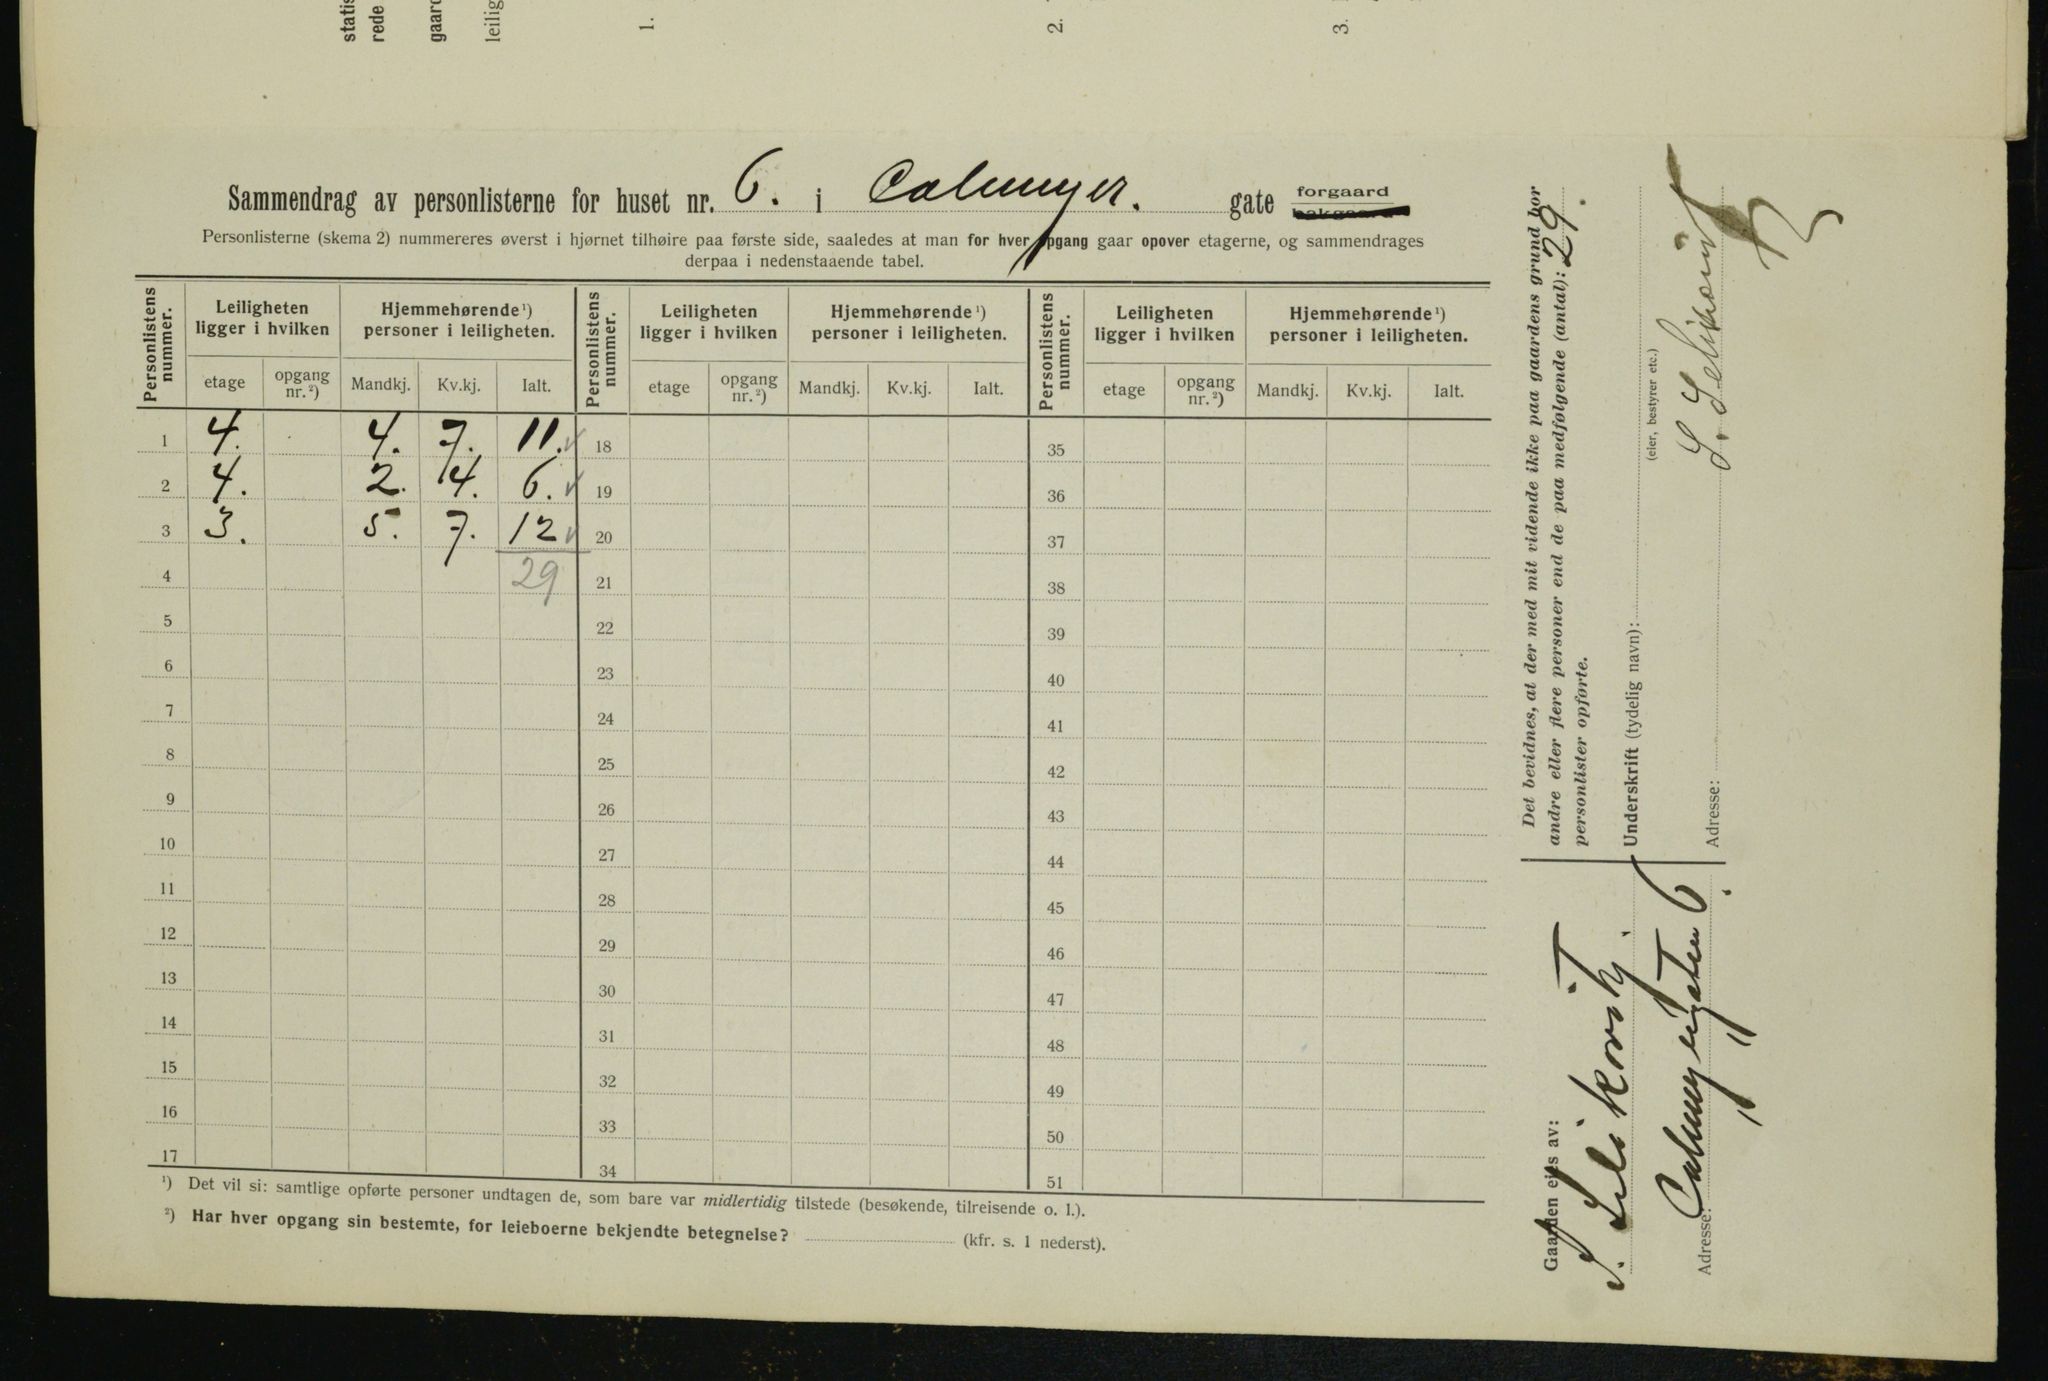 statis
rede
gaard
leilig
1.
2.
3.
Sammendrag av personlisterne for huset nr. 6. i Calmeyer. gate forgaard
Personlisterne (skema 2) nummereres øverst i hjørnet tilhøire paa første side, saaledes at man for hver opgang gaar opover etagerne, og sammendrages
derpaa i nedenstaaende tabel.
Personlistens nummer. Leiligheten ligger i hvilken Hjemmehørende ¹) personer i leiligheten. Personlistens nummer. Leiligheten ligger i hvilken Hjemmehørende ¹) personer i leiligheten. Personlistens nummer. Leiligheten ligger i hvilken Hjemmehørende ¹) personer i leiligheten.
etage opgang nr. ²) Mandkj. Kv.kj. Ialt. etage opgang nr. ²) Mandkj. Kv.kj. Ialt. etage opgang nr. ²) Mandkj. Kv.kj. Ialt.
1 4. 4. 7. 11. 18 35
2 4. 2. 4. 6. 19 36
3 3. 5. 7. 12 20 37
4 29 21 38
5 22 39
6 23 40
7 24 41
8 25 42
9 26 43
10 27 44
11 28 45
12 29 46
13 30 47
14 31 48
15 32 49
16 33 50
17 34 51
¹) Det vil si: samtlige opførte personer undtagen de, som bare var midlertidig tilstede (besøkende, tilreisende o. l.).
²) Har hver opgang sin bestemte, for leieboerne bekjendte betegnelse? (kfr. s. 1 nederst).
Det bevidnes, at der med mit vidende ikke paa gaardens grund bor
andre eller flere personer end de paa medfølgende (antal): 29.
personlister opførte.
Underskrift (tydelig navn):
(eier, bestyrer etc.)
Adresse:
Gaarden eies av:
Adresse: Calmeyergaten 6.